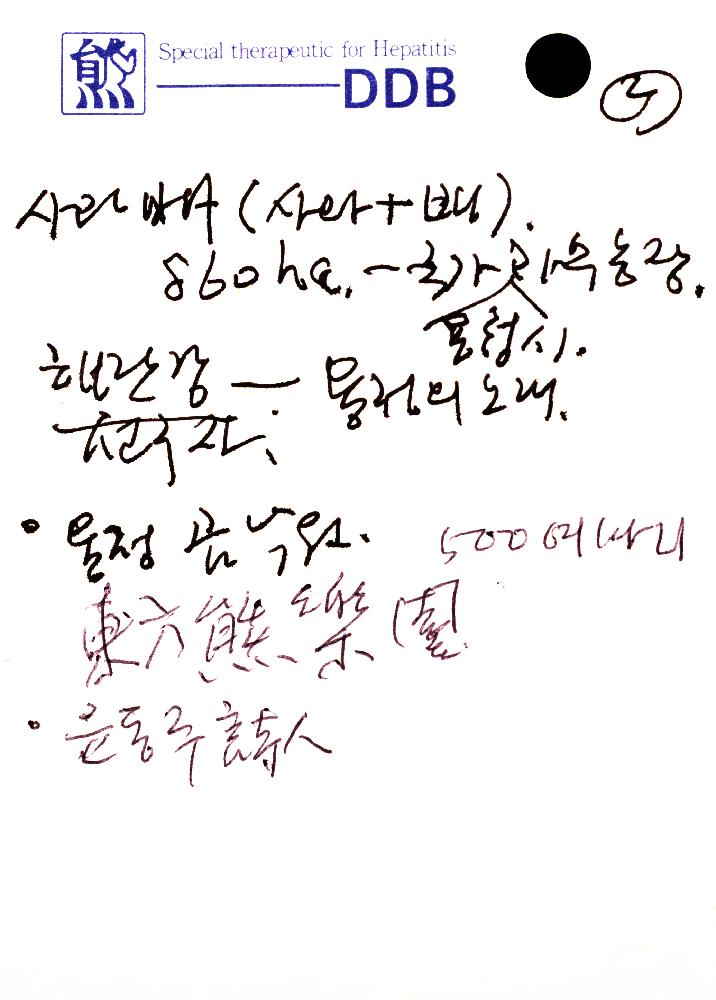 熊
Special therapeutic for Hepatitis
DDB
5
사과배 (사과+배).
860 ha. - 국가과수농장.
해란강 — 용정의 노래.
선구자.
• 용정 곰낙원. 500여마리
東方熊樂園
• 윤동주 詩人